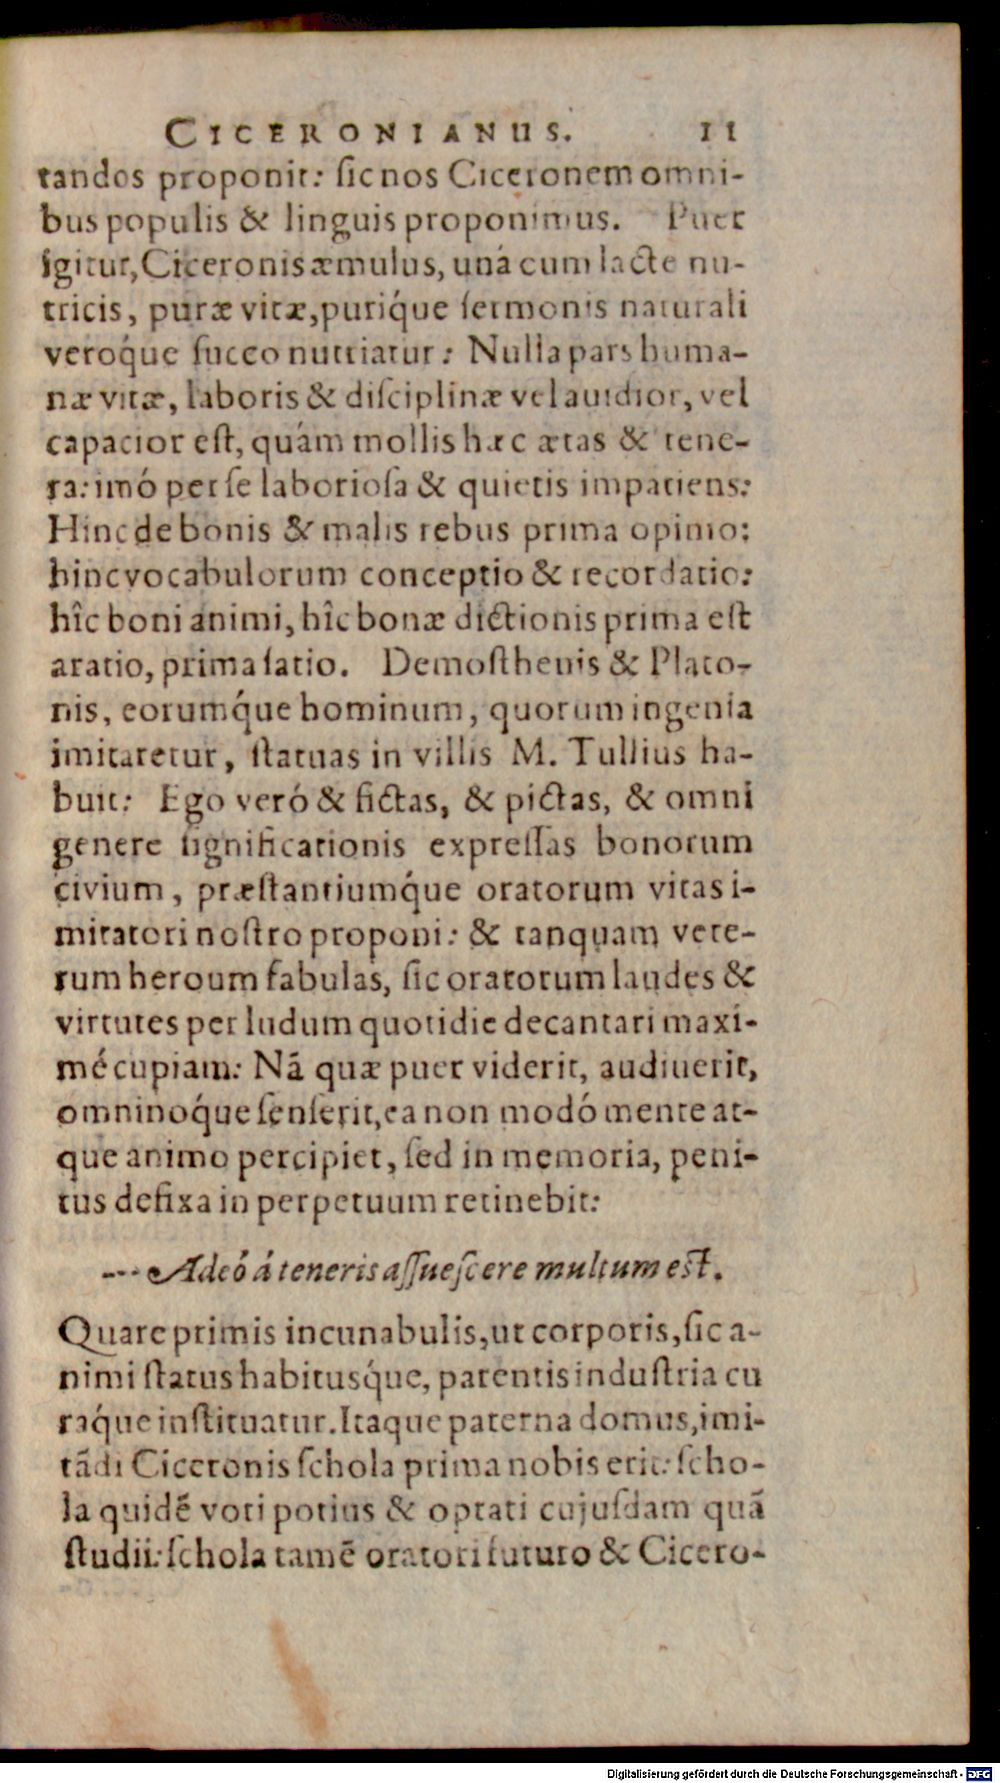 CICERONIANUS. 11
tandos proponit: ſic nos Ciceronem omni-
bus populis & linguis proponimus. Puer
igitur, Ciceronis æmulus, unà cum lacte nu-
tricis, puræ vitæ, puriq́ue ſermonis naturali
veroq́ue ſucco nutriatur: Nulla pars huma-
næ vitæ, laboris & diſciplinæ vel auidior, vel
capacior eſt, quám mollis hæc ætas & tene-
ra: imó per ſe laborioſa & quietis impatiens:
Hinc de bonis & malis rebus prima opinio:
hinc vocabulorum conceptio & recordatio:
hîc boni animi, hîc bonæ dictionis prima eſt
aratio, prima ſatio. Demoſthenis & Plato-
nis, eorumq́ue hominum, quorum ingenia
imitaretur, ſtatuas in villis M. Tullius ha-
buit: Ego veró & fictas, & pictas, & omni
genere ſignificationis expreſſas bonorum
civium, præſtantiumq́ue oratorum vitas i-
mitatori noſtro proponi: & tanquam vete-
rum heroum fabulas, ſic oratorum laudes &
virtutes per ludum quotidie decantari maxi-
mé cupiam: Nā quæ puer viderit, audiuerit,
omninoq́ue ſenſerit, ea non modó mente at-
que animo percipiet, ſed in memoria, peni-
tus defixa in perpetuum retinebit:
--- Adeó á teneris aſſueſcere multum eſt.
Quare primis incunabulis, ut corporis, ſic a-
nimi ſtatus habitusq́ue, parentis induſtria cu
raq́ue inſtituatur. Itaque paterna domus, imi-
tādi Ciceronis ſchola prima nobis erit: ſcho-
la quidē voti potius & optati cujuſdam quā
ſtudii: ſchola tamē oratori futuro & Cicero-
Digitalisierung gefördert durch die Deutsche Forschungsgemeinschaft - DFG